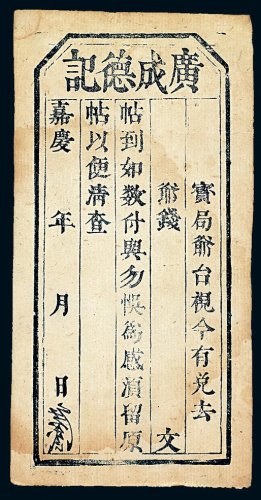 廣成德記
寳局爺台視今有兑去
錢 文
帖到如数付與勿悞為感湏留原
帖以便清查
嘉慶 年 月 日